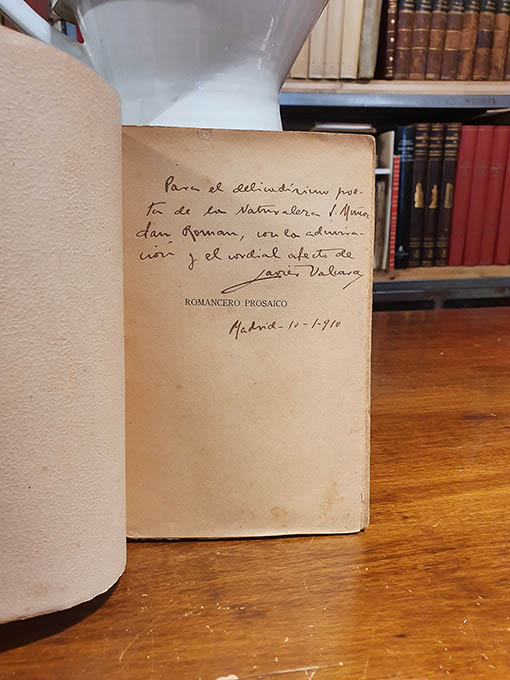 Para el delicadísimo poe-
ta de la Naturaleza J. Muñoz
San Roman, con la admira-
ción y el cordial afecto de
Javier Valcarce
ROMANCERO PROSAICO
Madrid-10-1-910